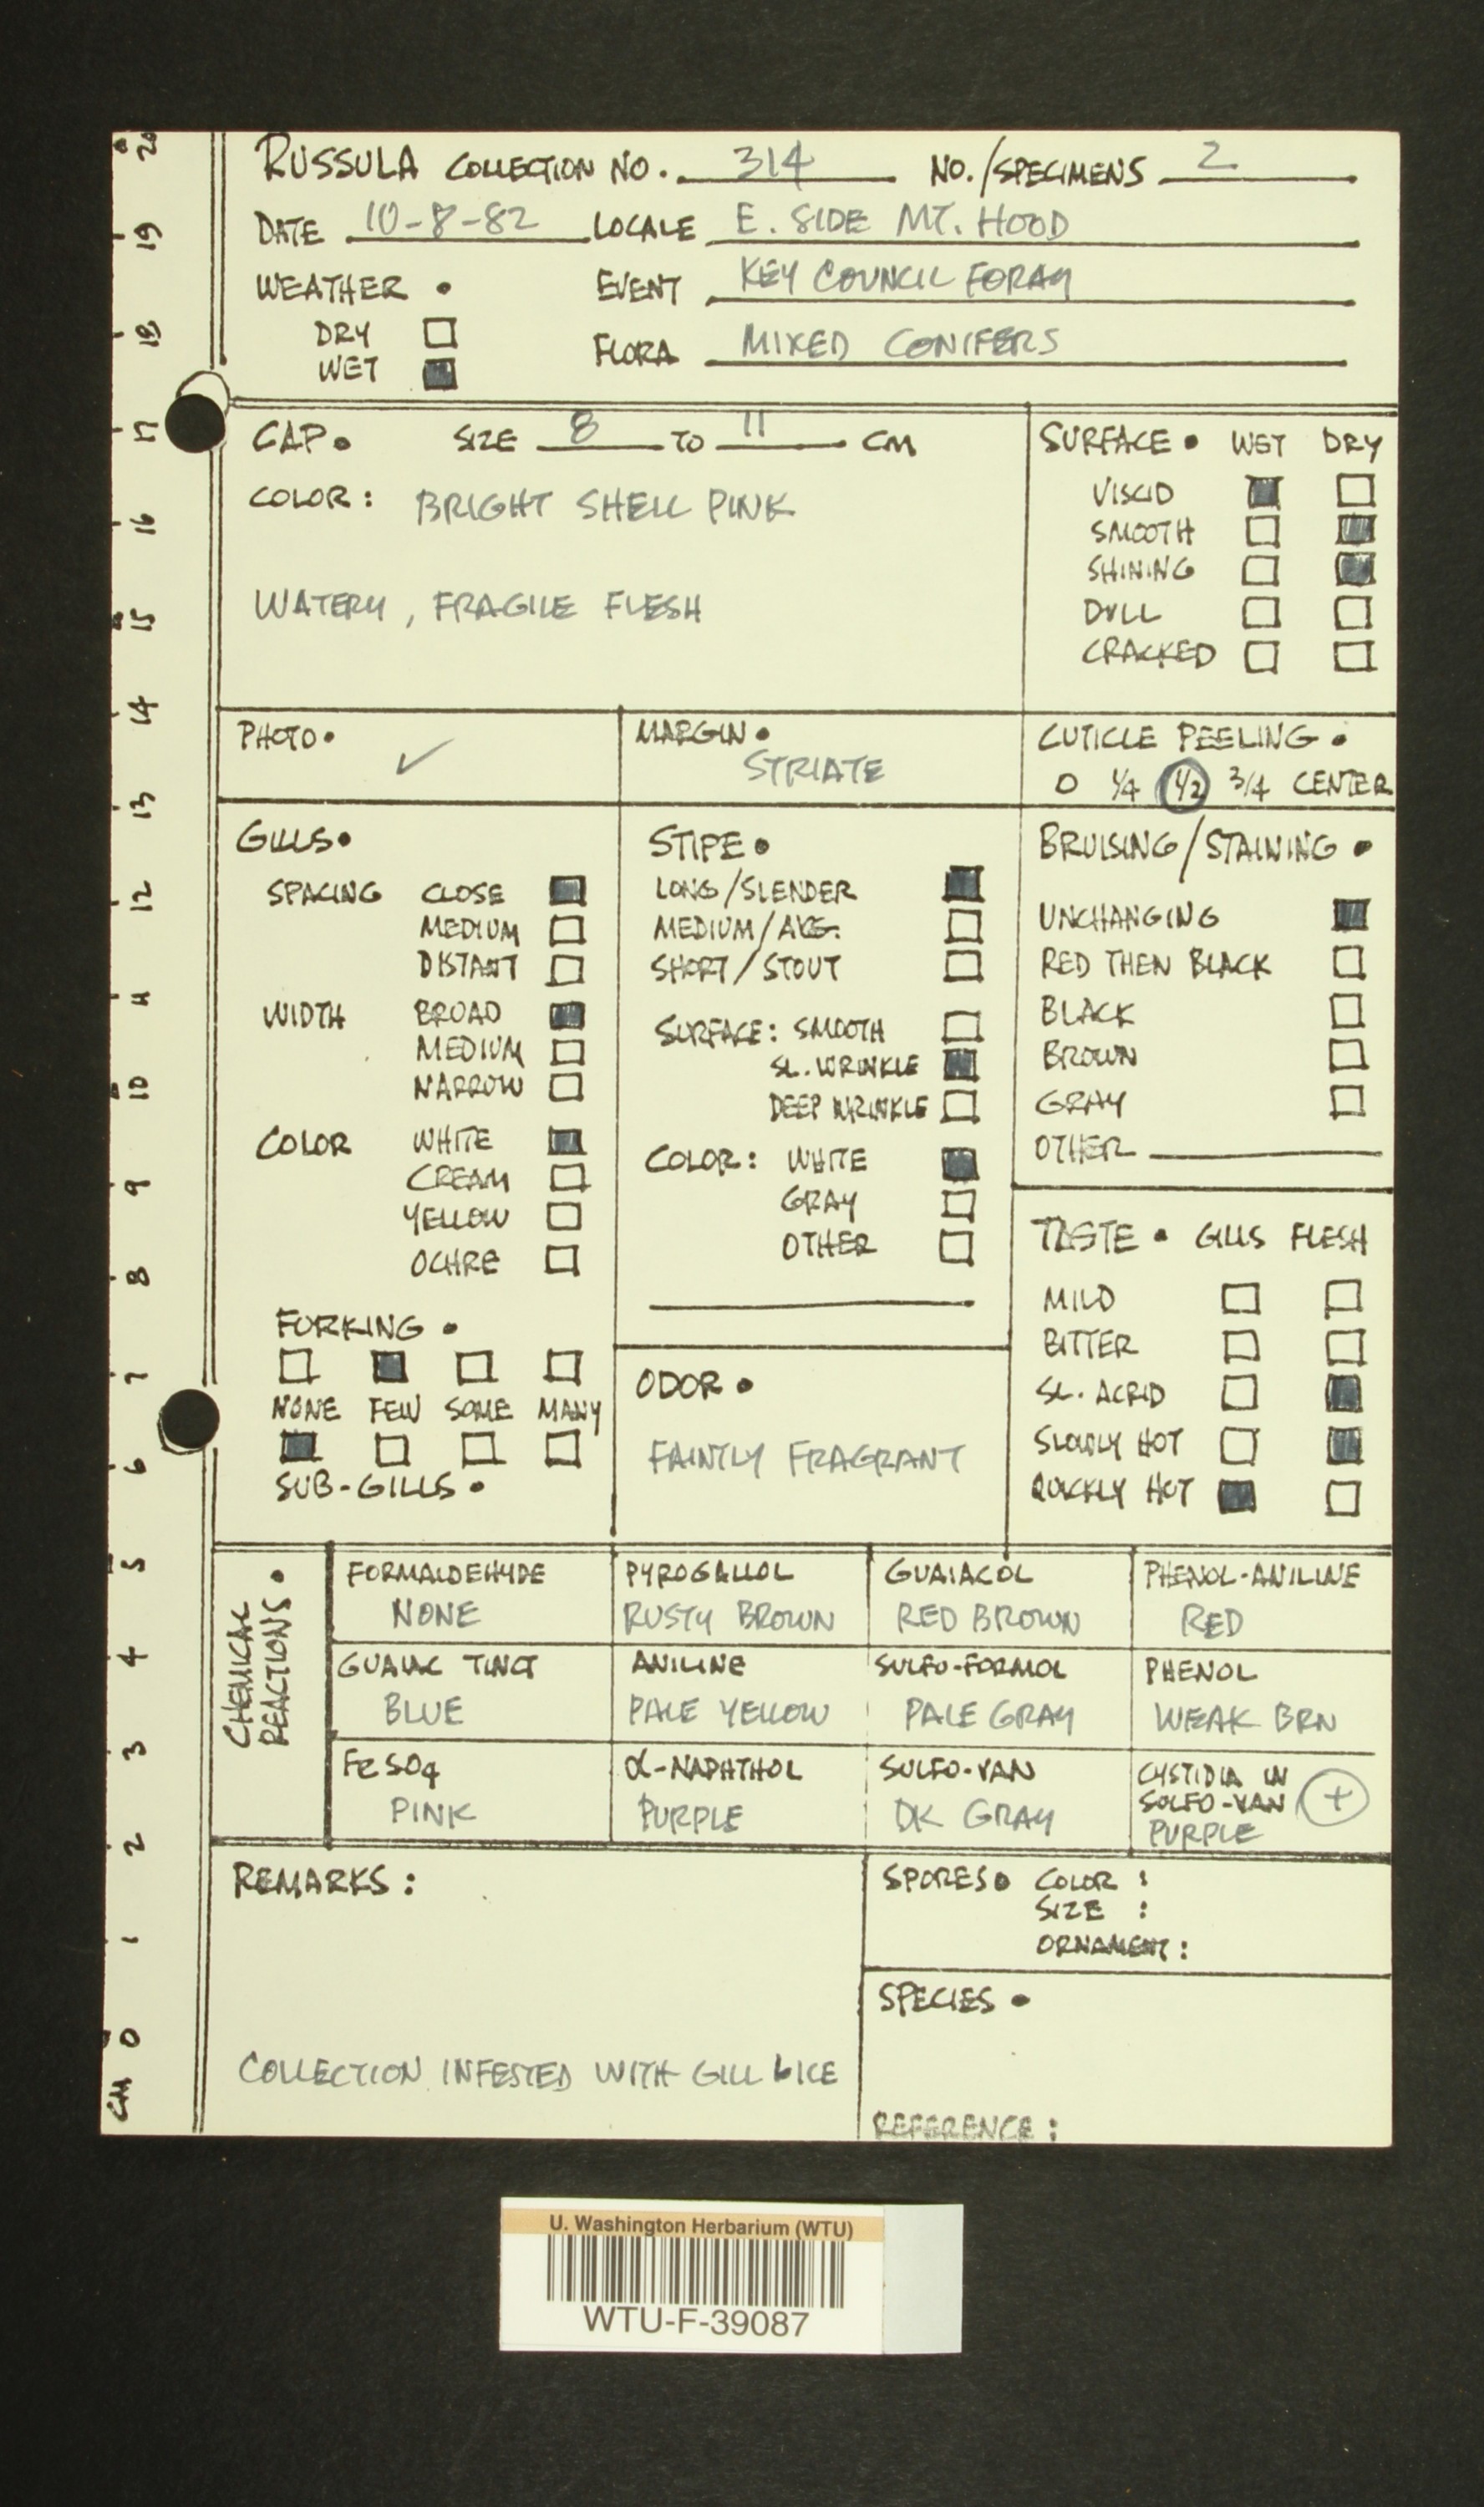 RUSSULA COLLECTION NO. 314 NO./SPECIMENS 2
DATE 10-8-82 LOCALE E. SIDE MT. HOOD
WEATHER • EVENT KEY COUNCIL FORAY
DRY ☐
WET ■ FLORA MIXED CONIFERS
CAP • SIZE 8 TO 11 CM
COLOR: BRIGHT SHELL PINK
WATERY, FRAGILE FLESH
SURFACE • WET DRY
VISCID ■ ☐
SMOOTH ☐ ■
SHINING ☐ ■
DULL ☐ ☐
CRACKED ☐ ☐
PHOTO • ✓
MARGIN •
STRIATE
CUTICLE PEELING •
0 1/4 1/2 3/4 CENTER
GILLS •
SPACING CLOSE ■
MEDIUM ☐
DISTANT ☐
WIDTH BROAD ■
MEDIUM ☐
NARROW ☐
COLOR WHITE ■
CREAM ☐
YELLOW ☐
OCHRE ☐
FORKING •
☐ ■ ☐ ☐
NONE FEW SOME MANY
■ ☐ ☐ ☐
SUB-GILLS •
STIPE •
LONG/SLENDER ■
MEDIUM/AVG. ☐
SHORT/STOUT ☐
SURFACE: SMOOTH ☐
SL. WRINKLE ■
DEEP WRINKLE ☐
COLOR: WHITE ■
GRAY ☐
OTHER ☐
ODOR •
FAINTLY FRAGRANT
BRUISING/STAINING •
UNCHANGING ■
RED THEN BLACK ☐
BLACK ☐
BROWN ☐
GRAY ☐
OTHER
TASTE • GILLS FLESH
MILD ☐ ☐
BITTER ☐ ☐
SL. ACRID ☐ ■
SLOWLY HOT ☐ ■
QUICKLY HOT ■ ☐
CHEMICAL
REACTIONS •
FORMALDEHYDE PYROGALLOL GUAIACOL PHENOL-ANILINE
NONE RUSTY BROWN RED BROWN RED
GUAIAC TINCT ANILINE SULFO-FORMOL PHENOL
BLUE PALE YELLOW PALE GRAY WEAK BRN
FeSO4 α-NAPHTHOL SULFO-VAN CYSTIDIA IN
SULFO-VAN +
PINK PURPLE DK GRAY PURPLE
REMARKS:
COLLECTION INFESTED WITH GILL LICE
SPORES • COLOR:
SIZE :
ORNAMENT:
SPECIES •
REFERENCE:
20
19
18
17
16
15
14
13
12
11
10
9
8
7
6
5
4
3
2
1
0
CM
U. Washington Herbarium (WTU)
WTU-F-39087